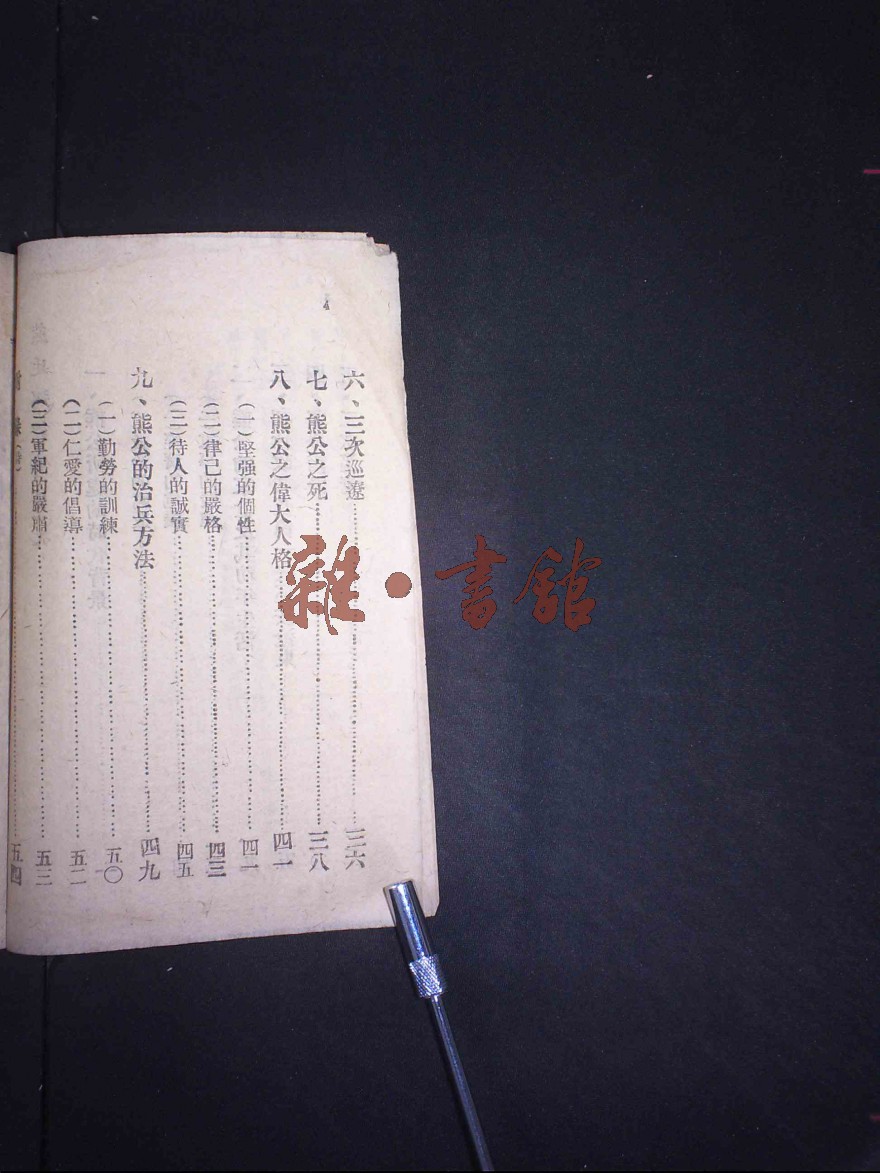 六、三次巡遼………三六
七、熊公之死………三八
八、熊公之偉大人格………四一
（一）堅强的個性………四一
（二）律己的嚴格………四三
（三）待人的誠實………四五
九、熊公的治兵方法………四九
（一）勤勞的訓練………五〇
（二）仁愛的倡導………五二
（三）軍紀的嚴肅………五三
錄………五四
雜·書館